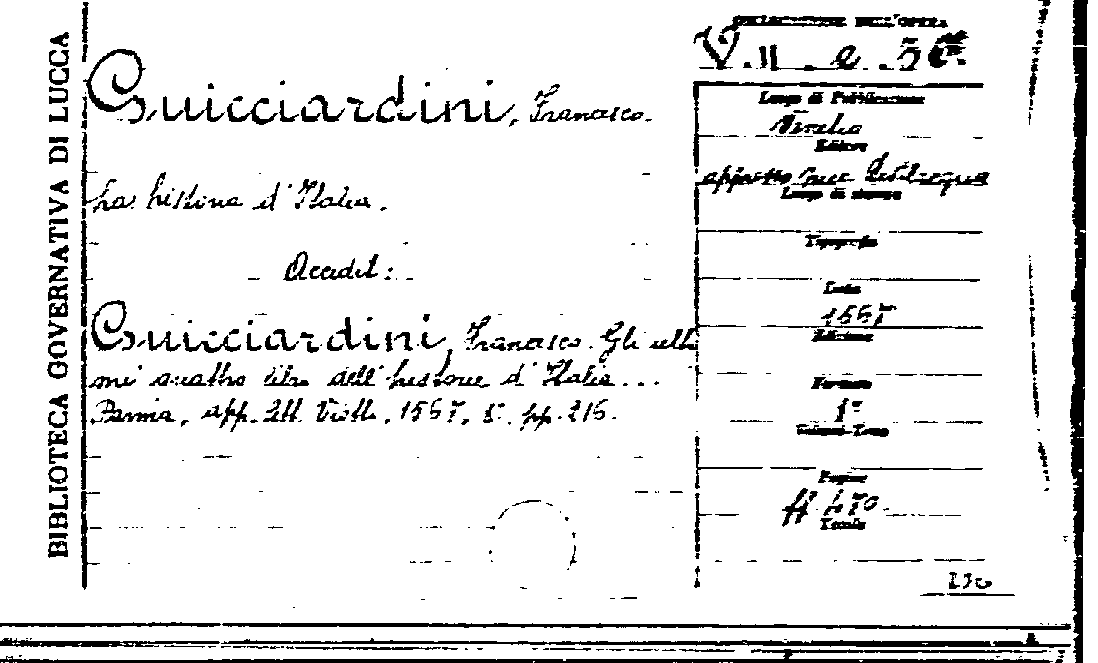 BIBLIOTECA GOVERNATIVA DI LUCCA
Guicciardini, Francesco.
La historia d'Italia.
Accedit:
Guicciardini, Francesco. Gli ulti
mi quattro libri dell'historie d'Italia...
Parma, app. Viotti, 1567, 8°. pp. 216.
COLLOCAZIONE DELL'OPERA
Luogo di Pubblicazione
Venetia
Editore
appresso Bevilacqua
Luogo di stampa
Tipografia
Data
Edizione
Formato
Volumi-Tomo
Pagine
Tavole